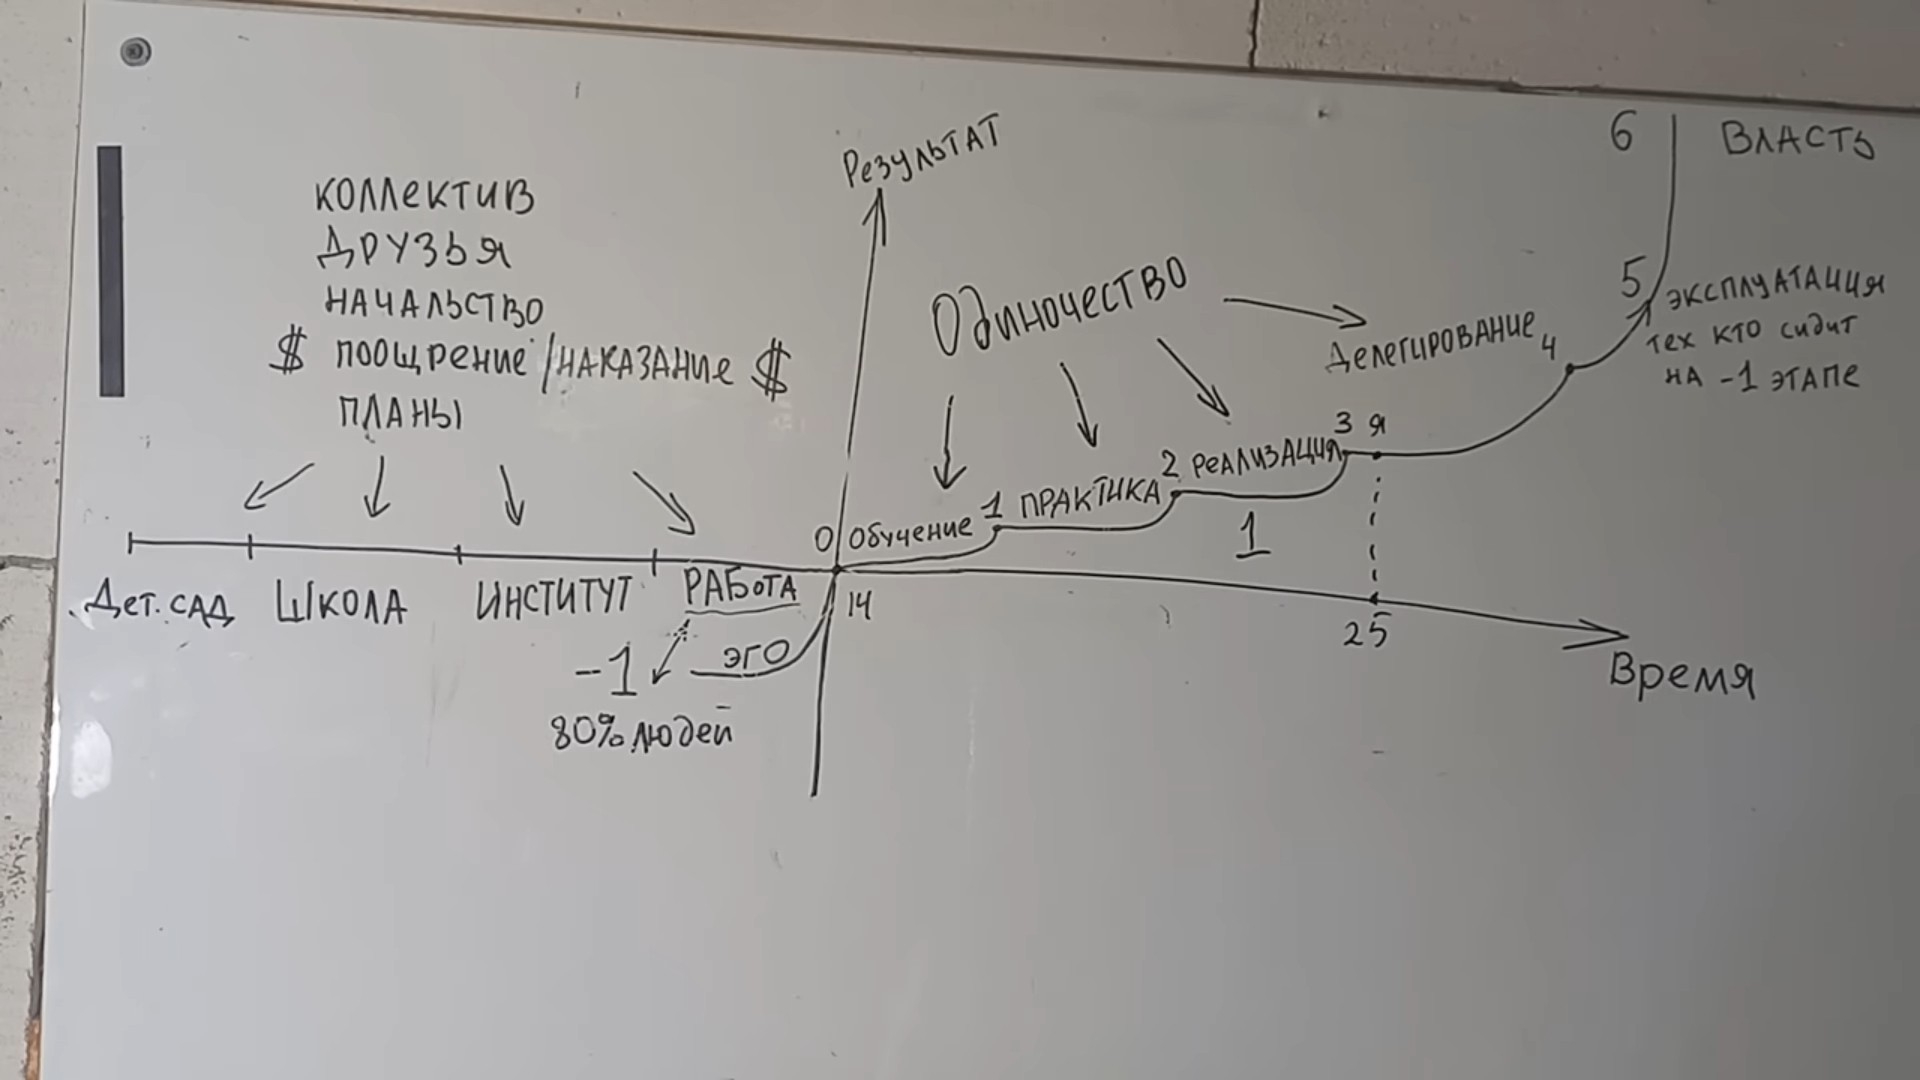 Результат
6 ВЛАСТЬ
КОЛЛЕКТИВ
ДРУЗЬЯ
НАЧАЛЬСТВО
$ ПООЩРЕНИЕ/НАКАЗАНИЕ $
ПЛАНЫ
Одиночество
Делегирование 4
5 ЭКСПЛУАТАЦИЯ
тех кто сидит
НА -1 ЭТАПЕ
0 Обучение 1 ПРАКТИКА 2 РЕАЛИЗАЦИЯ 3 Я
1
Дет. САД ШКОЛА ИНСТИТУТ РАБОТА
14
25
Время
-1 ЭГО
80% людей